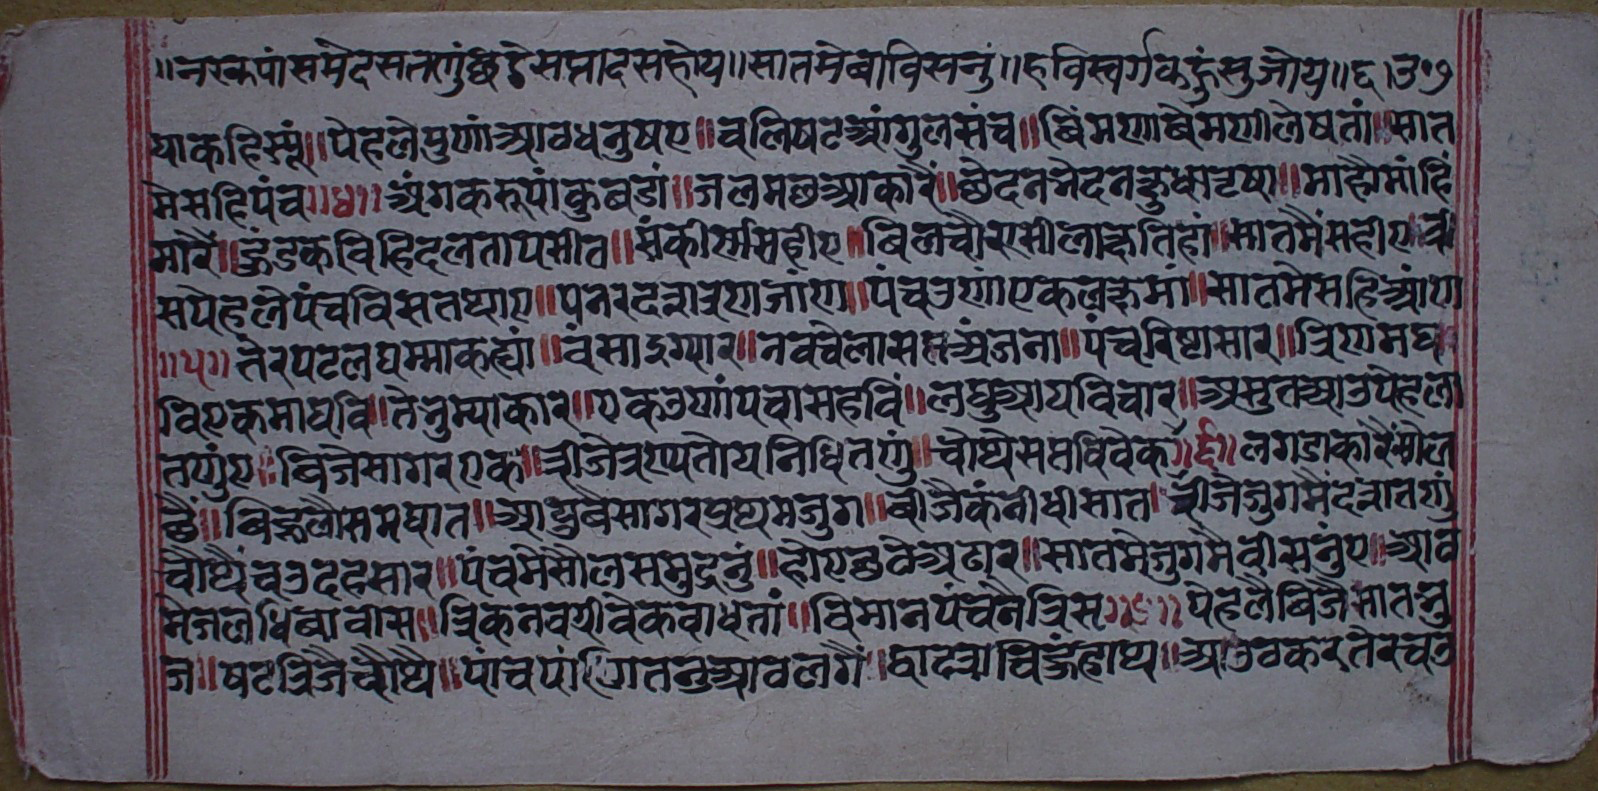 ॥नरकपांसमेदसतणुंछठेसप्तादसहोय॥सातमेबाविसनुं॥हविस्वर्गकहुंसुजोय॥६।३७७
याकहिस्पूं॥पेहलैपुणांआवधनुषए॥वलिषटअंगुलसंच॥बिमणाबैमणीलेषतां॥सात
मेसहिपंच॥४॥अंगकरूपांकुबडां॥जलमछआकारै॥छेदनमेदनक्षुधातृषा॥माहौमांहिं
मारै॥हुंडकविहिदलतापसीत॥संकीर्णसहीए॥बिलचौरासीलाहतिहां॥सातमैंसहीए
सपेहलेपंचविसतथाए॥पनरदसत्रणजांण॥पंचउणांएकलहमां॥सातमैसहिआंण
॥५॥तेरपटलघम्माकह्यां॥वंसाइग्यार॥नवचेलासप्तअंजना॥पंचरिष्टासार॥त्रिणमघ
विएकमाघवि॥तेनुम्याकार॥एकउणांपचासहविं॥लघुआयविचार॥असुतआउपेहला
तणुंए॥बिजैसागरएक॥त्रीजेत्रण्यतोयनिधितणुं॥चौथेसप्तधिवेक॥६॥लगडाकारैसोल
छैं॥बिहुलौसमघात॥आयुबैसागरप्रथमजुग॥बीजैकंबीधीसात॥त्रीजैजुगमैंदसतणुं
चौथैंचउदहसार॥पंचमेसौलसमुद्रनुं॥होएछठेअढार॥सातमेजुगमैवीसनुंए॥आव
मेजलधिबावीस॥त्रिकनवग्रीवेकवाधतां॥विमानपंचनैत्रिस॥७॥पेहलैबिजैसातनु
ज॥षटत्रिजैचौथै॥पांचपांणितनुआवलगैं॥द्वादसविहुंहाथ॥आउवकरतेरचउ